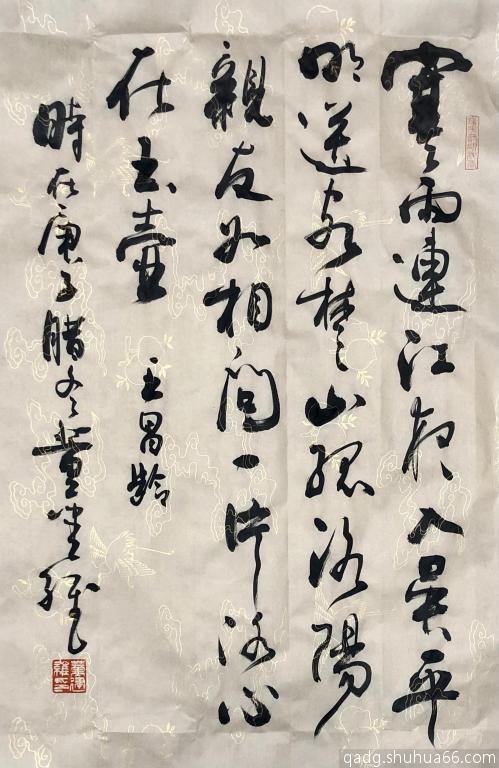 寒雨連江夜入吳平
明送客楚山孤洛陽
親友如相問一片冰心
在玉壺 王昌齡
時在庚子腊冬董
qadg.shuhua66.com